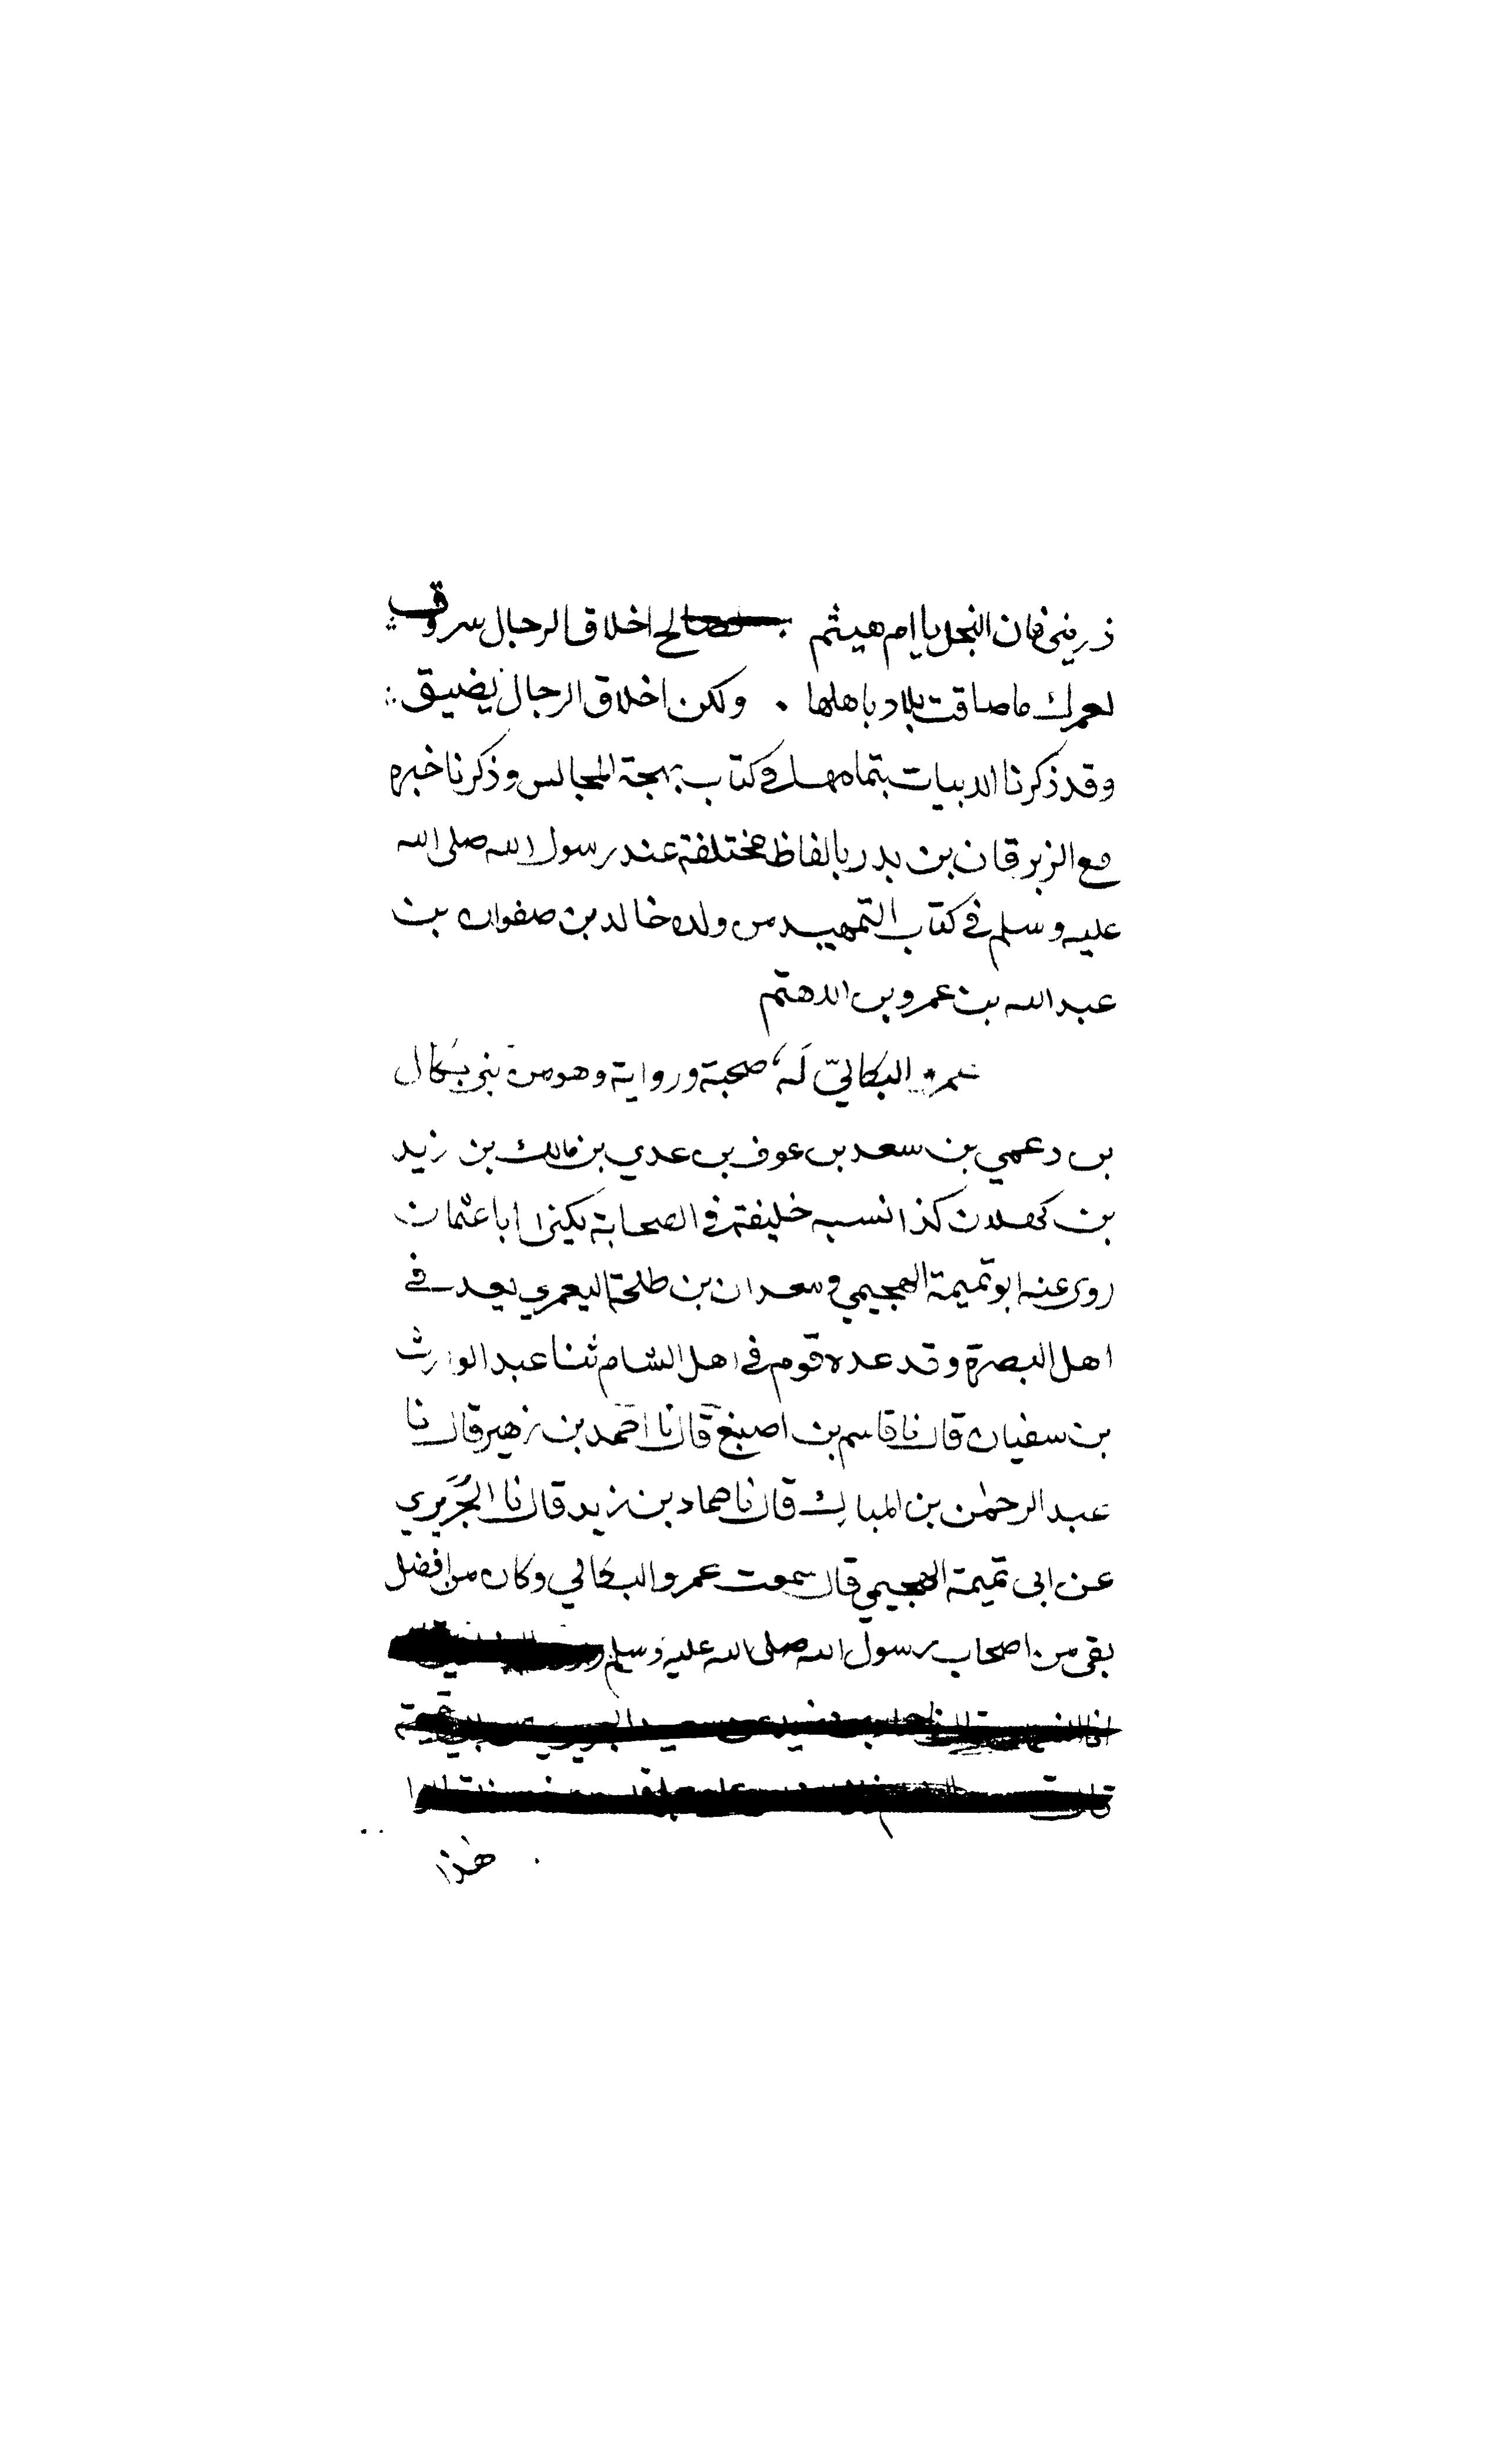 ذريني فان البخل يا ام هيثم لصالح اخلاق الرجال سروق
لعمرك ما ضاقت بلاد باهلها . ولكن اخلاق الرجال تضيق
وقد ذكرنا الابيات بتمامها في كتاب بهجة المجالس وذكرنا خبره
مع الزبرقان بن بدر بالفاظ مختلفة عند رسول الله صلى الله
عليه وسلم في كتاب التمهيد من ولده خالد بن صفوان بن
عبد الله بن عمرو بن الاهتم
عمرو البكاليّ لَهُ صحبة ورواية وهو من بني بكال
بن دعمي بن سعد بن عوف بن عدي بن مالك بن زيد
بن كهلان كذا نسبه خليفة في الصحابة يكنى ابا عثمان
روى عنه ابو تميمة الهجيمي و سعدان بن طلحة اليعمري يعد في
اهل البصرة وقد عده قوم في اهل الشام ثنا عبد الوارث
بن سفيان قال نا قاسم بن اصبغ قال نا احمد بن زهير قال نا
عبد الرحمٰن بن المبارك قال نا حماد بن زيد قال نا الجُرَيري
عن ابي تميمة الهجيمي قال سمعت عمرو البكالي وكان من افضل
بقى من اصحاب رسول الله صلى الله عليه وسلم
هٰذا